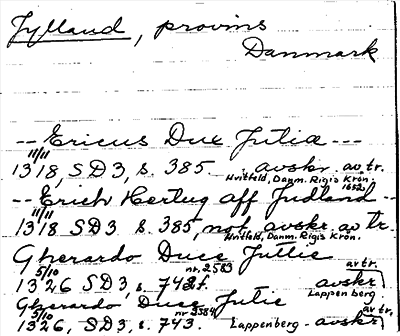 Jylland, provins
Danmark
-- Ericus Dux Jutia ---
11/11
1318, SD3, s. 385. avskr. av tr.
Hvitfeld, Danm. Rigis Krön. 1652.
-- Erich Hertug aff Judland --
11/11
1318 SD3 s. 385, not, avskr. av tr.
Hvitfeld, Danm. Rigis Krön.
Gherardo Duce Juttie
5/10 nr. 2583 av tr.
1326 SD3, s. 742f. avskr.
Lappenberg
Gherardo Duce Jutie
5/10 nr. 2584 av tr.
1326, SD3, s. 743. Lappenberg - avskr.